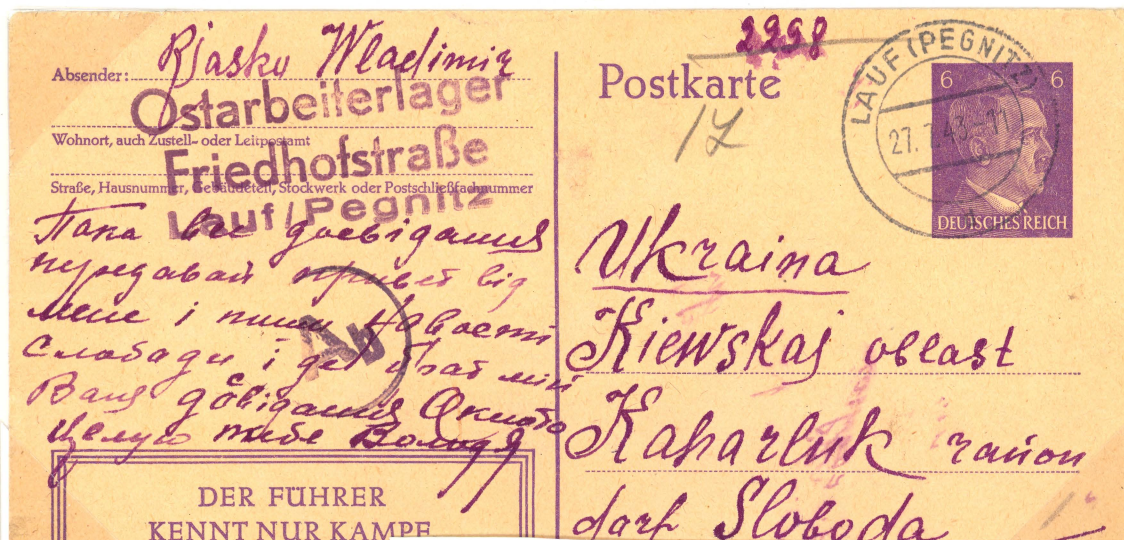 2298
Absender: Rjasko Wladimir
Ostarbeiterlager
Wohnort, auch Zustell- oder Leitpostamt
Friedhofstraße
Straße, Hausnummer, Gebäudeteil, Stockwerk oder Postschließfachnummer
Lauf/Pegnitz
Пака все довідания
передавай привет від
мене і пиши Навости
Слабади і де брат мій
Ваня довідания
Целую тебе Володя
Ab
DER FÜHRER
KENNT NUR KAMPF,
Postkarte
17
LAUF (PEGNITZ)
27. 43-11
6 6
DEUTSCHES REICH
Ukraina
Kiewskaj oblast
Kaharluk raion
darf Sloboda